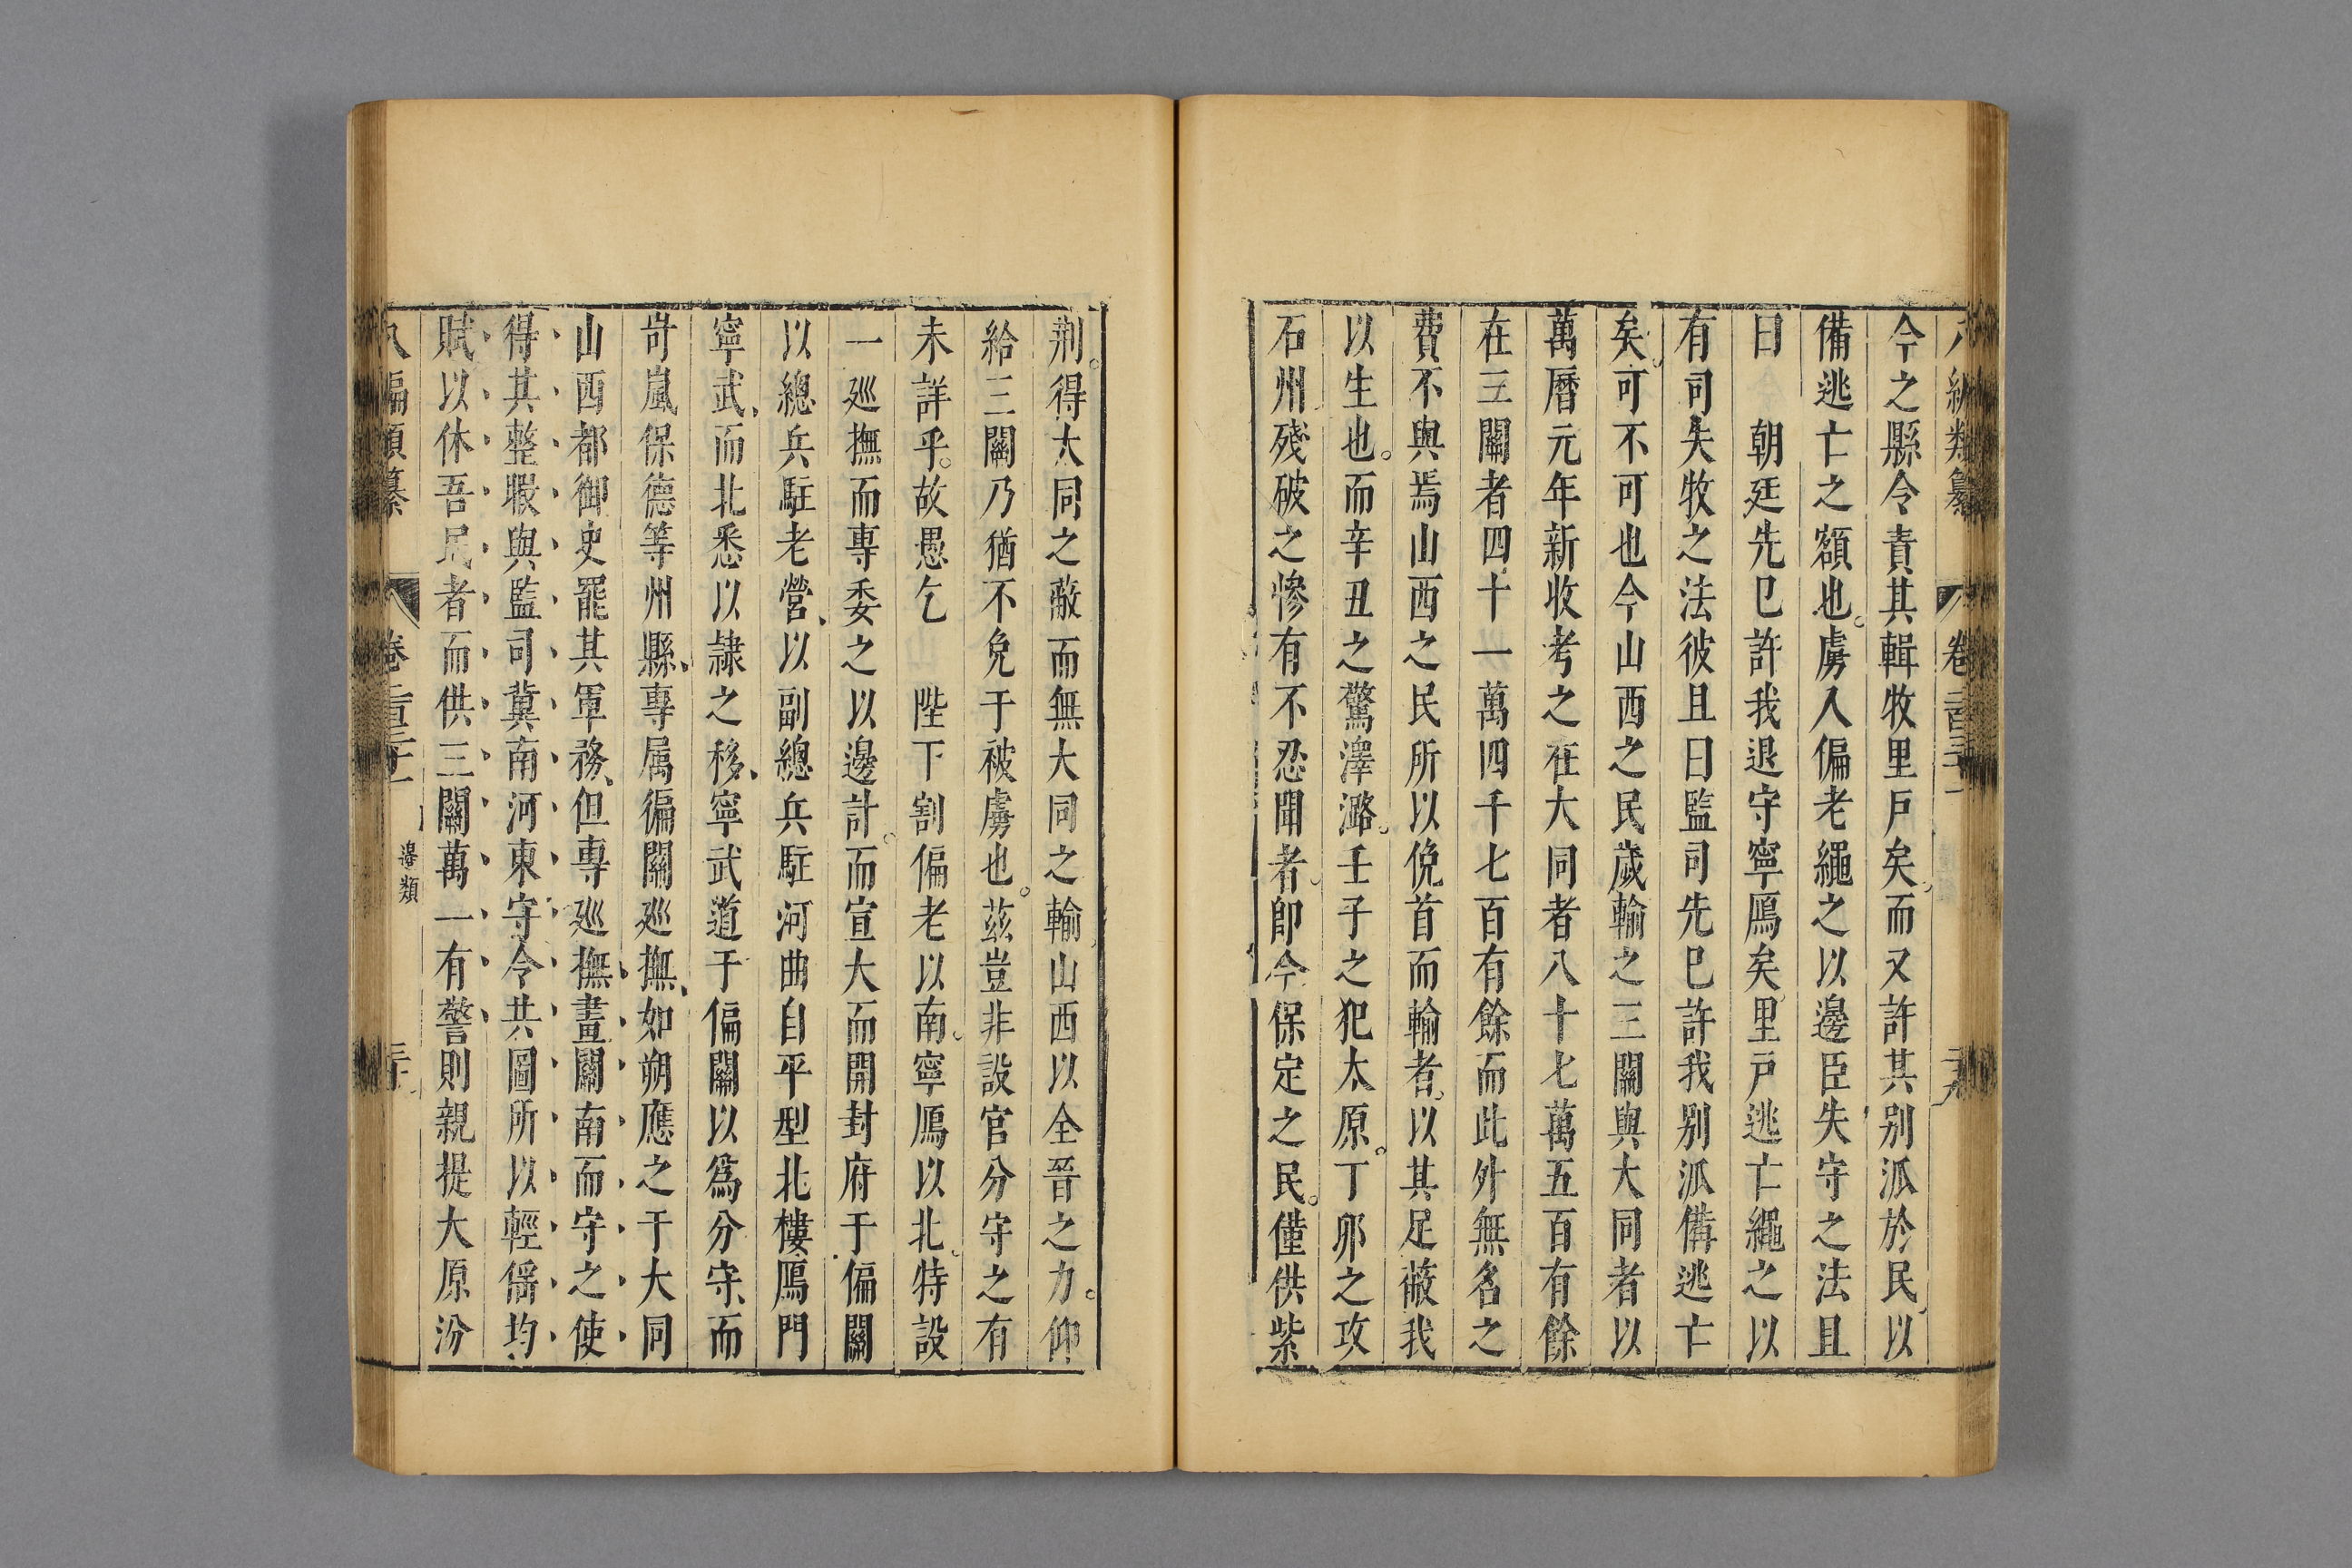 今之縣令責其輯牧里戸矣而又許其别派於民以
備逃亡之額也虜入偏老繩之以邊臣失守之法且
曰　朝廷先已許我退守寧鴈矣里戸逃亡繩之以
有司失牧之法彼且曰監司先已許我别派備逃亡
矣可不可也今山西之民歲輸之三關與大同者以
萬曆元年新收考之在大同者八十七萬五百有餘
在三關者四十一萬四千七百有餘而此外無名之
費不與焉山西之民所以俛首而輸者以其足蔽我
以生也而辛丑之驚澤潞壬子之犯太原丁夘之攻
石州殘破之慘有不忍聞者卽今保定之民僅供紫
荆得大同之蔽而無大同之輸山西以全晉之力仰
給三關乃猶不免于被虜也茲豈非設官分守之有
未詳乎故愚乞　陛下割偏老以南寧鴈以北特設
一廵撫而專委之以邊計而宣大而開封府于偏關
以總兵駐老營以副總兵駐河曲自平型北樓鴈門
寧武而北悉以隷之移寧武道于偏關以爲分守而
岢嵐保德等州縣專属徧關廵撫如朔應之于大同
山西都御史罷其軍務但專廵撫畫關南而守之使
得其整暇與監司冀南河東守令共圖所以輕徭均
賦以休吾民者而供三關萬一有警則親提大原汾
八編類纂　卷二百三十一　邊類　三十